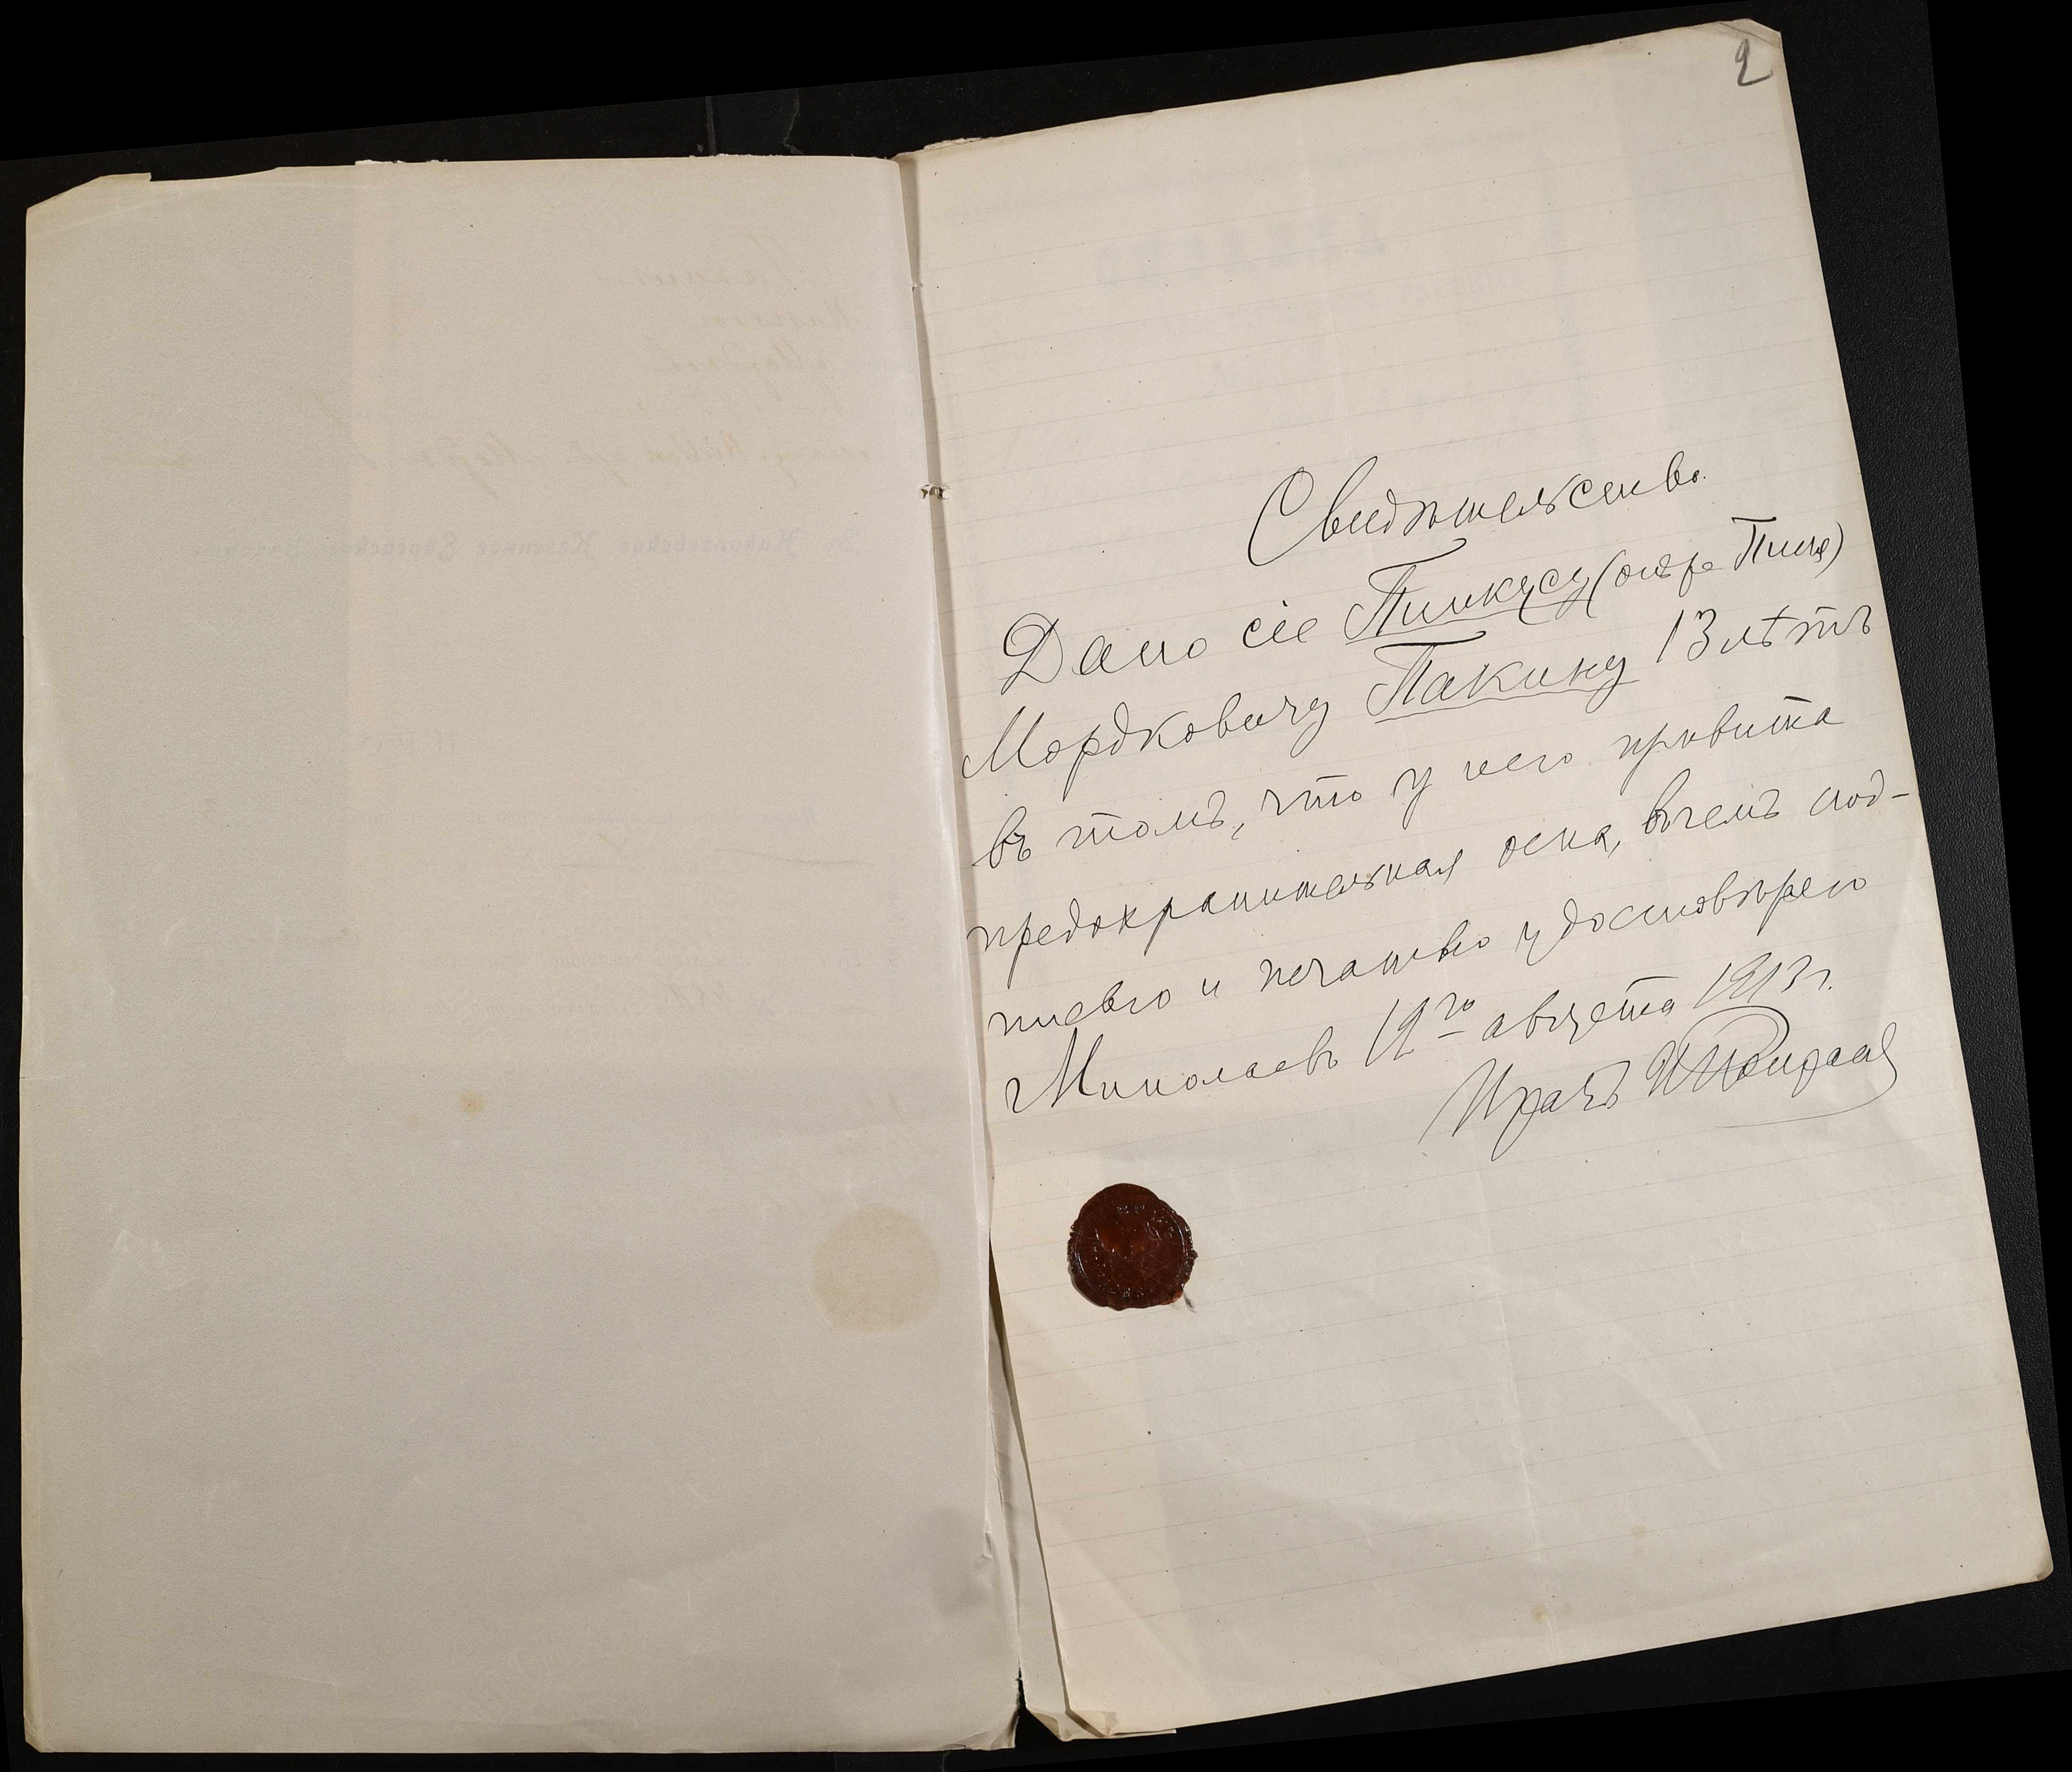 2
Свидѣтельство.
Дано сіе Пинкусу (онъ же Пиня)
Мордковичу Пакину 13 лѣтъ
въ томъ, что у него привита
предохранительная оспа, въ чемъ под-
писью и печатью удостовѣряю
Николаевъ 19го августа 1913 г.
Врачъ